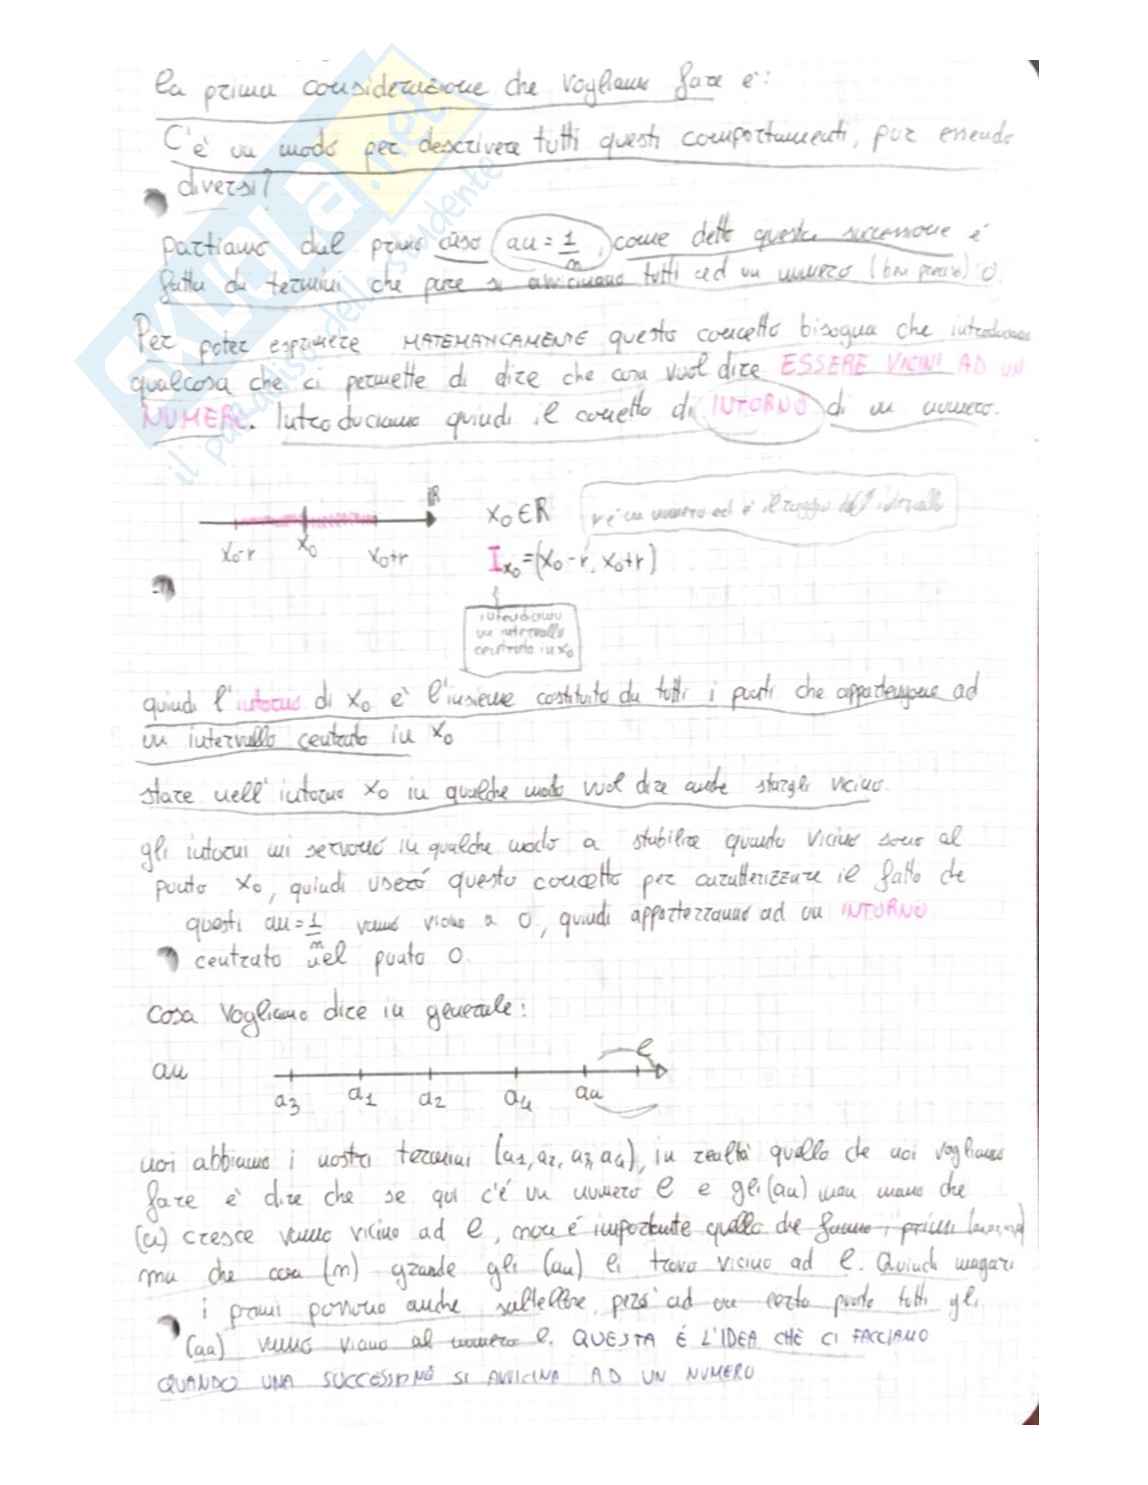 la prima considerazione che vogliamo fare è:
C'è un modo per descrivere tutti questi comportamenti, pur essendo
diversi?
partiamo dal primo caso an = 1/n, come detto questa successione è
fatta di termini che pare si avvicinano tutti ad un numero (ben preciso) 0.
Per poter esprimere MATEMANCAMENTE questo concetto bisogna che introduciamo
qualcosa che ci permette di dire che cosa vuol dire ESSERE VICINI AD UN
NUMERO. Introduciamo quindi il concetto di INTORNO di un numero.
R
x0-r x0 x0+r
x0 ∈ R
r è un numero ed è il raggio dell'intervallo
Ix0 = (x0 - r, x0 + r)
intendiamo
un intervallo
centrato in x0
quindi l'intorno di x0 è l'insieme costituito da tutti i punti che appartengono ad
un intervallo centrato in x0
stare nell'intorno x0 in qualche modo vuol dire anche stargli vicino.
gli intorni mi servono in qualche modo a stabilire quanto vicino sono al
punto x0, quindi userò questo concetto per caratterizzare il fatto che
questi an = 1/n vanno vicino a 0, quindi apparterranno ad un INTORNO
centrato nel punto 0.
Cosa vogliamo dire in generale:
an
l
a3 a1 a2 a4 an
noi abbiamo i nostri termini (a1, a2, a3, a4), in realtà quello che noi vogliamo
fare è dire che se qui c'è un numero l e gli (an) man mano che
(n) cresce vanno vicino ad l, non è importante quello che fanno i primi
ma che con (n) grande gli (an) li trovo vicino ad l. Quindi magari
i primi possono anche saltellare, però ad un certo punto tutti gli
(an) vanno vicino al numero l. QUESTA È L'IDEA CHE CI FACCIAMO
QUANDO UNA SUCCESSIONE SI AVVICINA AD UN NUMERO
SKUOLA.net
il paradiso dello studente